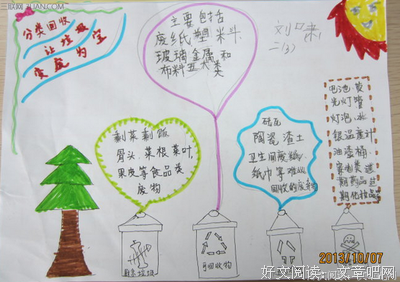 分类回收
让垃圾
变废为宝
主要包括
废纸塑料
玻璃金属和
布料五大类
刘
二(3)
剩菜剩饭
骨头、菜根菜叶、
果皮等食品类
废物
砖瓦
陶瓷渣土
卫生间废纸
纸巾等难以
回收的废弃
电池荧
光灯管
灯泡水
银温度计
油漆桶
类过
期药品过
期化妆品
厨余垃圾
可回收物
2013/10/07
好文阅读:文章吧网